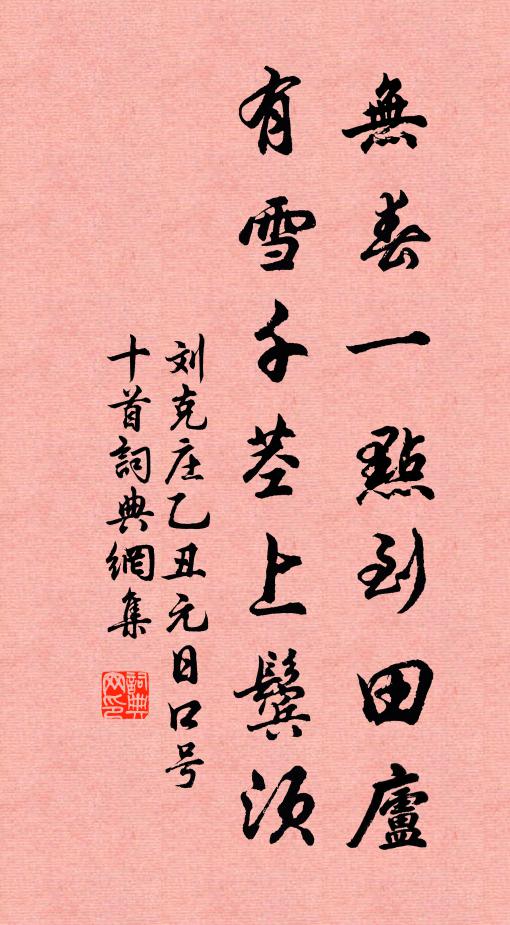 無春一點到田廬
有雪千莖上鬢须
刘克庄乙丑元日口号
十首詞典網集
詞典
网印